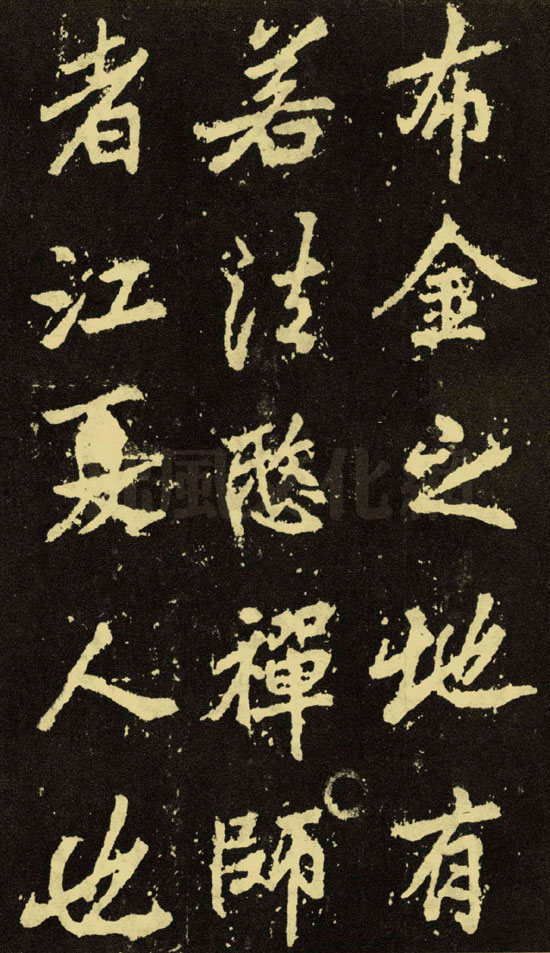 布金之地有
若法愍禪師
者江夏人也